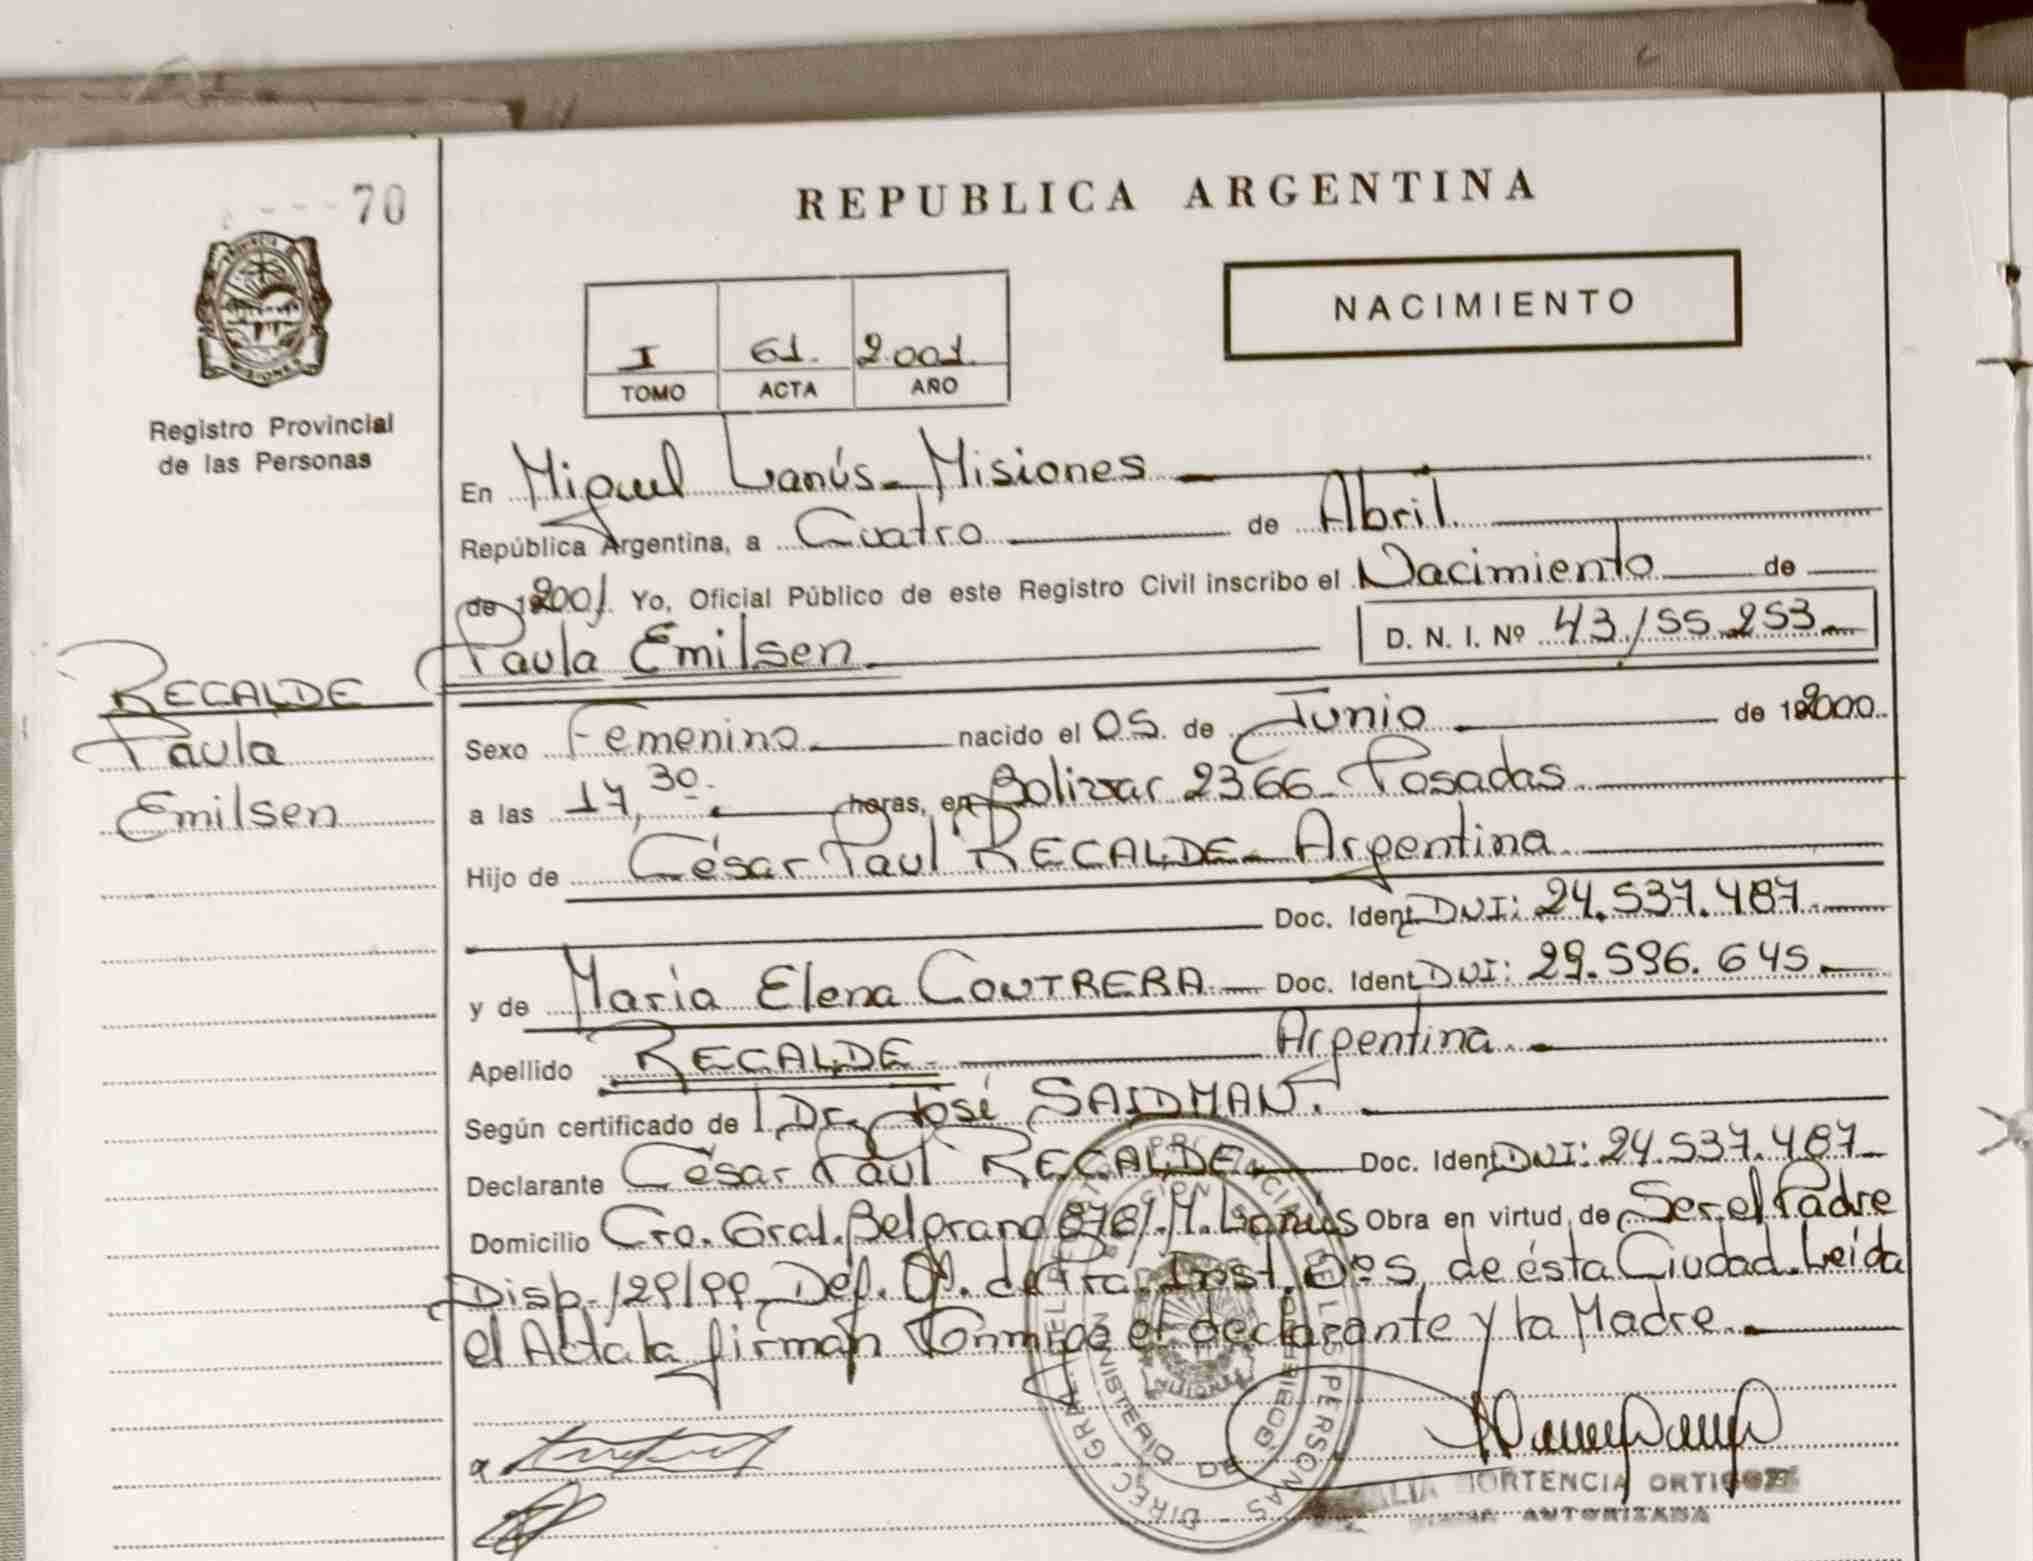 70
REPUBLICA ARGENTINA
NACIMIENTO
I 61. 2.001.
TOMO ACTA AÑO
PROVINCIA
MISIONES
Registro Provincial
de las Personas
En Miguel Lanús_Misiones
República Argentina, a Cuatro de Abril.
de 2001. Yo, Oficial Público de este Registro Civil inscribo el Nacimiento de
Paula Emilsen D. N. I. Nº 43/55.253
RECALDE
Paula
Emilsen
Sexo Femenino nacido el 05 de Junio de 2000
a las 17,30. horas, en Bolivar 2366_Posadas
Hijo de César Paul RECALDE_Argentina
Doc. Ident DNI: 24.537.487.
y de María Elena CONTRERA Doc. Ident DNI: 29.596.645.
Apellido RECALDE Argentina.
Según certificado de Dr. José SAIDMAN.
Declarante César Paul RECALDE Doc. Ident DNI: 24.537.487
Domicilio Cro. Gral. Belgrano M. Lanús Obra en virtud de Ser el Padre
Disp. 129/99 Def. Of. de Pra. Inst. de ésta Ciudad. Leída
el Acta la firman Conmigo el declarante y la Madre.
DIREC. GRAL. DEL REGISTRO PROVINCIAL DE LAS PERSONAS
MINISTERIO DE GOBIERNO
MISIONES
HORTENCIA
AUTORIZADA